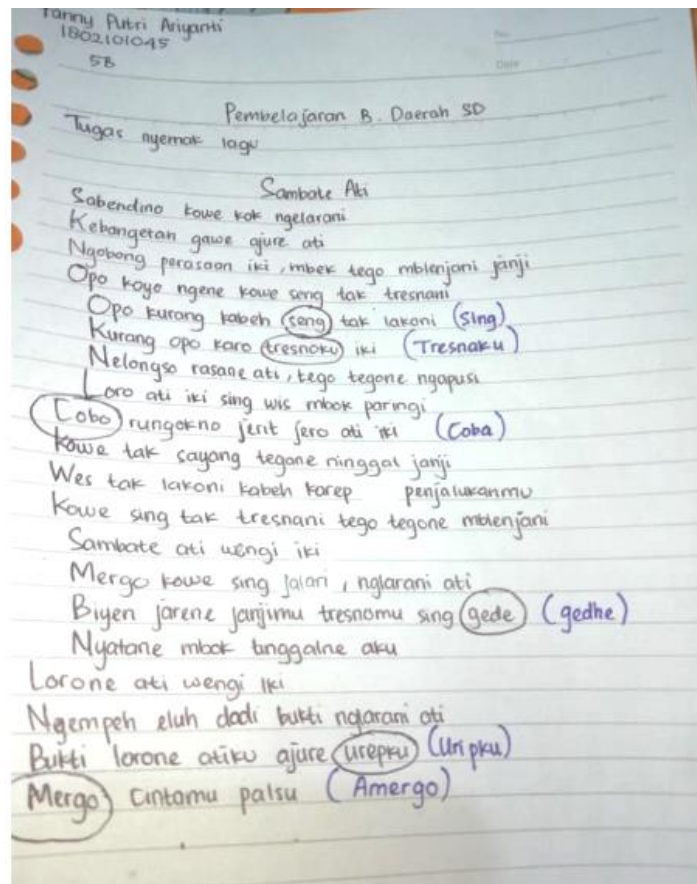 Fanny Putri Ariyanti
1802101045
5B
No.
Date
Pembelajaran B. Daerah SD
Tugas nyemak lagu
Sambate Ati
Sabendino kowe kok ngelarani
Kebangetan gawe ajure ati
Ngobong perasaan iki, mbek tego mblenjani janji
Opo koyo ngene kowe seng tak tresnani
Opo kurang kabeh seng tak lakoni (Sing)
Kurang opo karo tresnoku iki (Tresnaku)
Nelongso rasane ati, tego tegone ngapusi
Loro ati iki sing wis mbok paringi
Cobo rungokno jerit jero ati iki (Coba)
Kowe tak sayang tegane ninggal janji
Wes tak lakoni kabeh karep penjalukanmu
Kowe sing tak tresnani tego tegone mblenjani
Sambate ati wengi iki
Mergo kowe sing jalari, nglarani ati
Biyen jarene janjimu tresnomu sing gede (gedhe)
Nyatane mbok tinggalne aku
Lorone ati wengi iki
Ngempeh eluh dadi bukti nglarani ati
Bukti lorone atiku ajure urepku (Uripku)
Mergo cintamu palsu (Amergo)